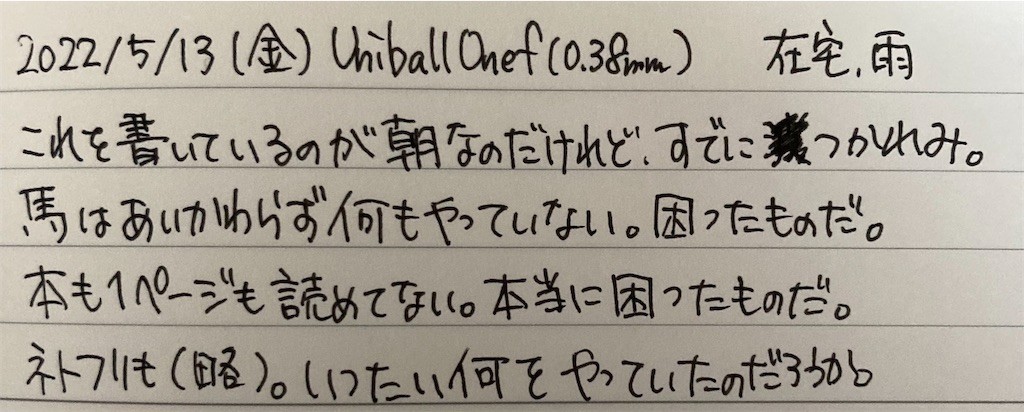 2022/5/13(金) Uniball One F(0.38mm) 在宅、雨
これを書いているのが朝なのだけれど、すでにつかれみ。
馬はあいかわらず何もやっていない。困ったものだ。
本も1ページも読めてない。本当に困ったものだ。
ネトフリも(略)。いったい何をやっていたのだろうか